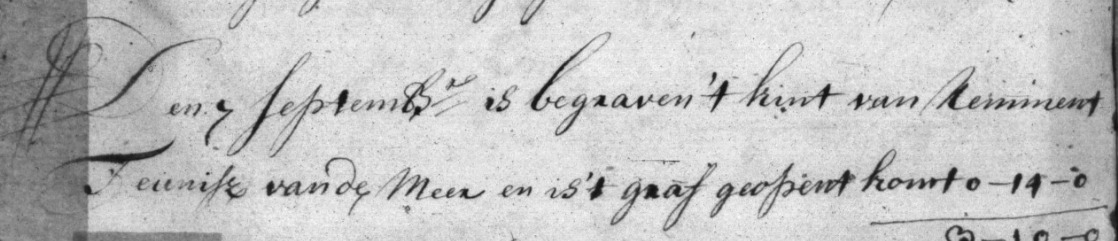 Den 7 septemBr is begraven 't kint van Remment
Teunisz vande Meer en is 't graf geopent komt 0-14-0